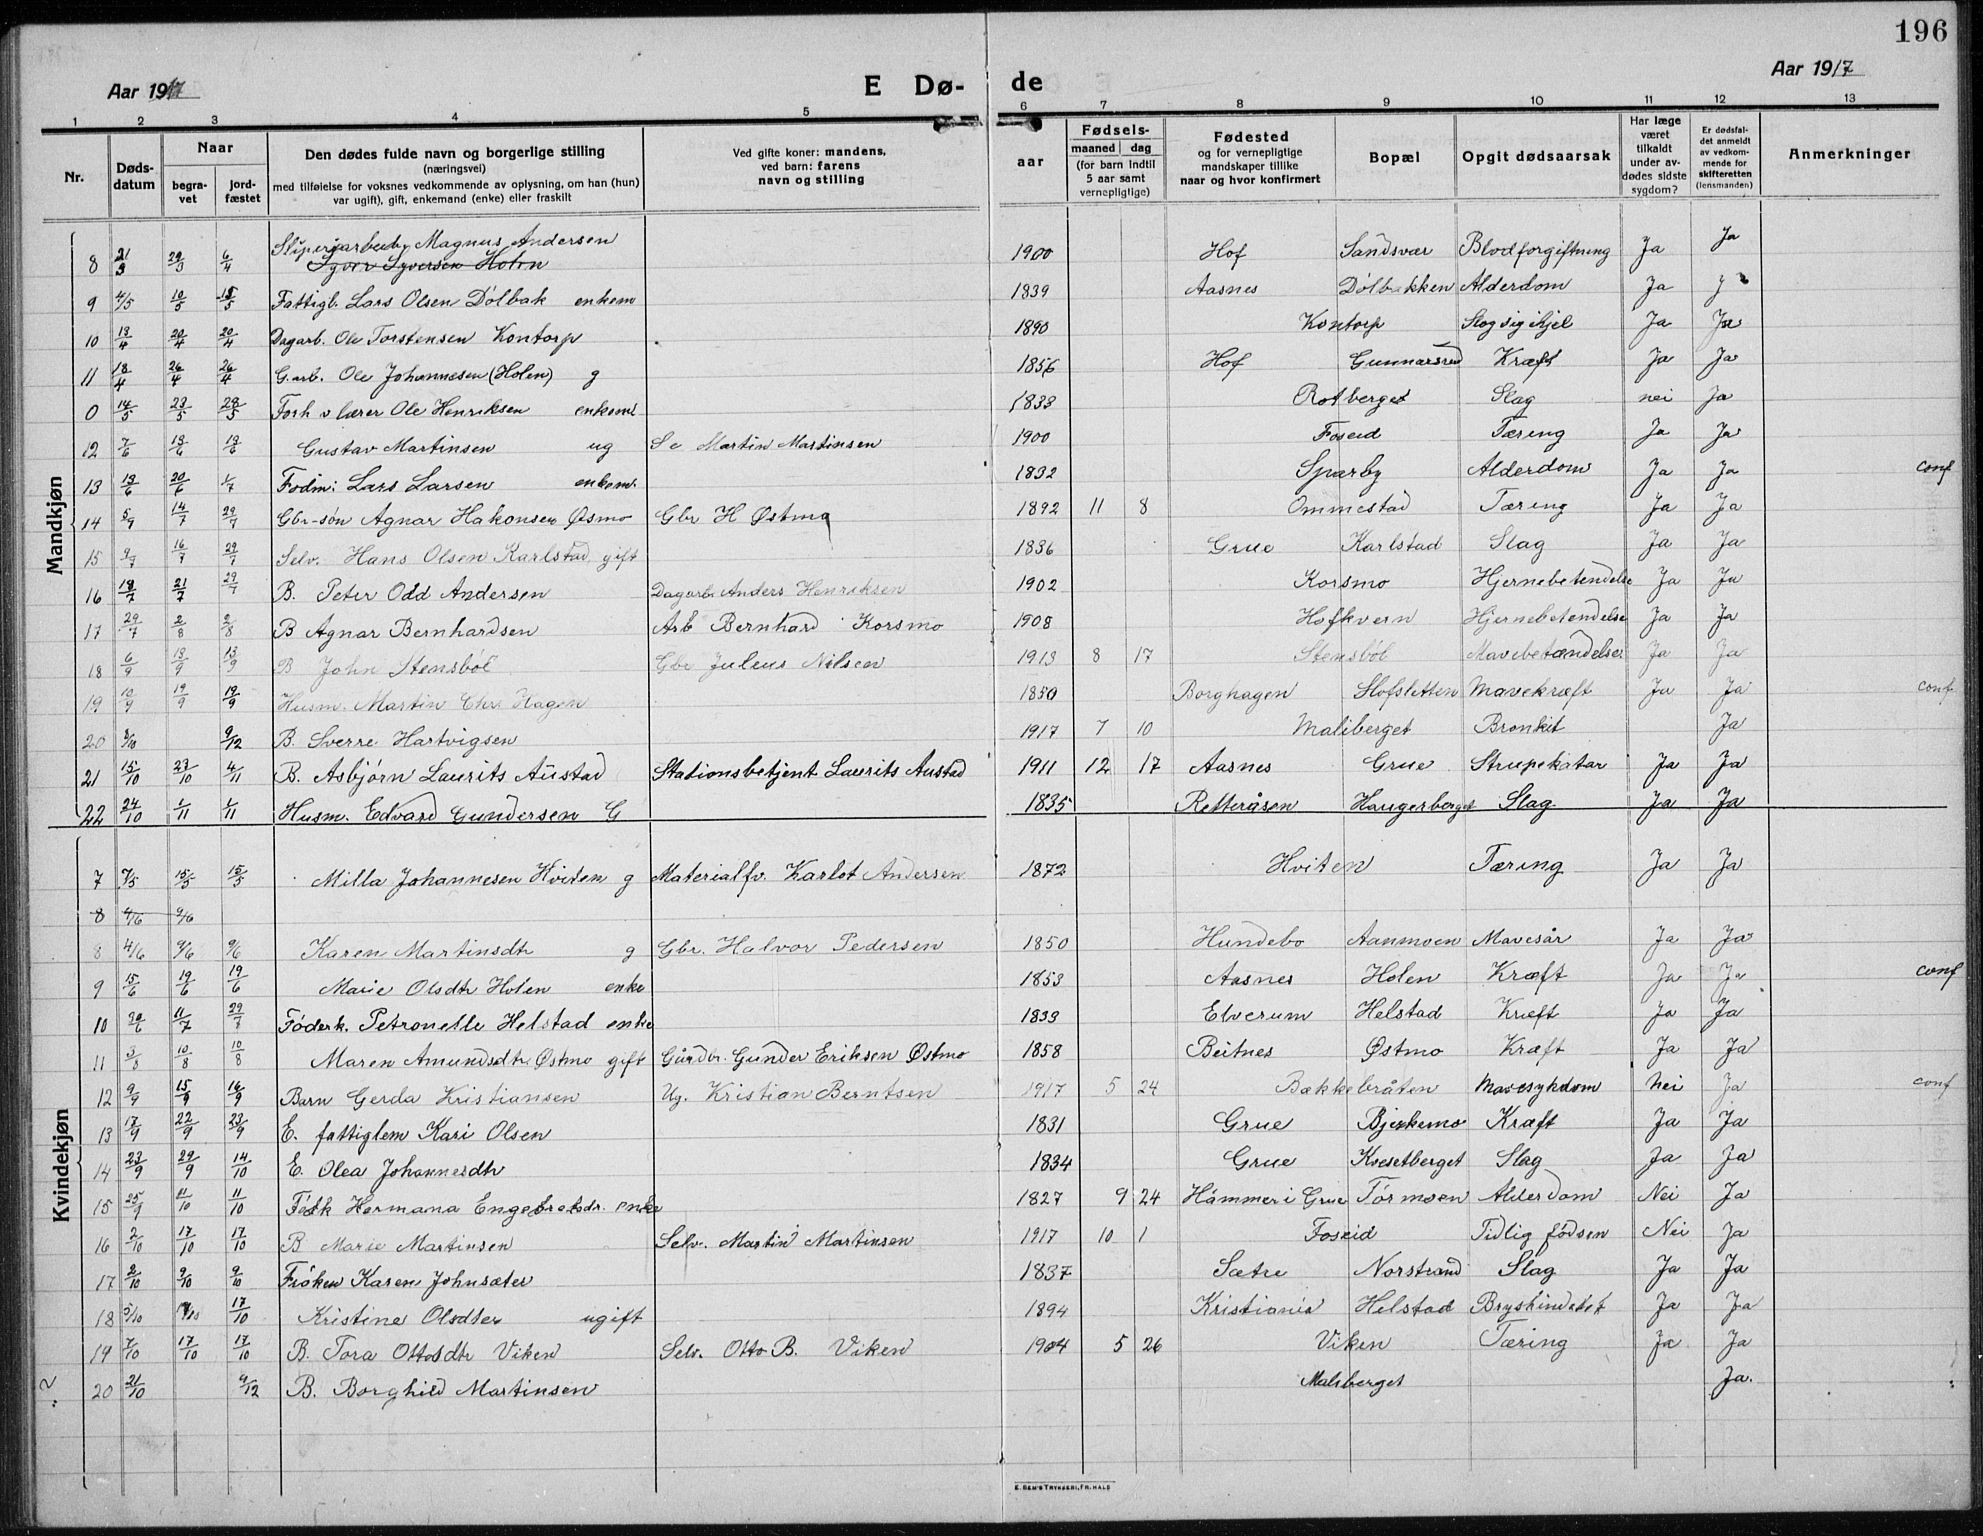 196
Aar 1917
E Dø-
de
Aar 1917
1 2 3 4 5 6 7 8 9 10 11 12 13
Nr.
Døds-datum
Naar
begra-vet
jord-fæstet
Den dødes fulde navn og borgerlige stilling
(næringsvei)
med tilføielse for voksnes vedkommende av oplysning, om han (hun)
var ugift), gift, enkemand (enke) eller fraskilt
Ved gifte koner: mandens,
ved barn: farens
navn og stilling
aar
Fødsels-
maaned dag
(for barn indtil
5 aar samt
vernepligtige)
Fødested
og for vernepligtige
mandskaper tillike
naar og hvor konfirmert
Bopæl
Opgit dødsaarsak
Har læge
været
tilkaldt
under av-
dødes sidste
sygdom?
Er dødsfal-
det anmeldt
av vedkom-
mende for
skifteretten
(lensmanden)
Anmerkninger
Mandkjøn
8 21/3 29/3 6/4 Sliperiarbeid. Magnus Andersen 1900 Hof Sandsvær Blodforgiftning Ja Ja
Syver Syversen Holm
9 4/5 10/5 15/5 Fattigb. Lars Olsen Dölbak enkem 1839 Aasnes Dölbakken Alderdom Ja J
10 13/4 20/4 20/4 Dagarb. Ole Torstensen Kontorp 1890 Kontorp Slog sig ihjel Ja Ja
11 18/4 26/4 26/4 G.arb. Ole Johannesen (Holen) g 1856 Hof Gunnarsrud Kræft Ja Ja
0 14/5 23/5 28/5 Forh v lærer Ole Henriksen enkem 1833 Rotberget Slag nei Ja
12 7/6 13/6 13/6 Gustav Martinsen ug Se Martin Martinsen 1900 Foseid Tæring Ja Ja
13 13/6 20/6 1/7 Födm: Lars Larsen enkem. 1832 Sparby Alderdom Ja Ja conf
14 5/7 14/7 29/7 Gbr-sön Agnar Hakonsen Østmo Gbr H Østmo 1892 11 8 Ommestad Tæring Ja Ja
15 9/7 16/7 29/7 Selv. Hans Olsen Karlstad gift 1836 Grue Karlstad Slag Ja Ja
16 18/7 21/7 29/7 B. Peter Odd Andersen Dagarb. Anders Henriksen 1902 Korsmo Hjernebetendelse Ja Ja
17 29/7 2/8 2/8 B Agnar Bernhardsen Arb Bernhard Korsmo 1908 Hofkvern Hjernebetendelse Ja Ja
18 6/9 13/9 13/9 B John Stensböl Gbr Juleus Nilsen 1913 8 17 Stensböl Mavebetændelse Ja Ja
19 10/9 19/9 19/9 Husm. Martin Chr. Hagen 1850 Borghagen Slofsletten Mavekræft Ja Ja conf
20 3/10 9/12 B. Sverre Hartvigsen 1917 7 10 Maliberget Bronkit Ja
21 15/10 27/10 4/11 B. Asbjörn Laurits Austad Stationsbetjent Laurits Austad 1911 12 17 Aasnes Grue Strupekatar Ja Ja
22 24/10 1/11 1/11 Husm. Edvard Gundersen G 1835 Retteråsen Haugerberget Slag Ja Ja
Kvindekjøn
7 7/5 15/5 15/5 Milla Johannesen Hviten g Materialfv. Karlot Andersen 1872 Hviten Tæring Ja Ja
8 4/6 9/6
8 4/6 9/6 9/6 Karen Martinsdtr g Gbr. Halvor Pedersen 1850 Hundebo Aanmoen Mavesår Ja Ja
9 15/6 19/6 19/6 Marie Olsdtr Holen enke 1853 Aasnes Holen Kræft Ja Ja conf
10 30/6 11/7 29/7 Föderk. Petronelle Helstad enke 1833 Elverum Helstad Kræft Ja Ja
11 3/8 10/8 10/8 Maren Amundsdtr. Østmo gift Gårdbr. Gunder Eriksen Østmo 1858 Beitnes Østmo Kræft Ja Ja
12 9/9 15/9 16/9 Barn Gerda Kristiansen Ug. Kristian Berntsen 1917 5 24 Bækkebråten Mavesykdom Nei Ja conf
13 17/9 22/9 23/9 E. fattiglem Kari Olsen 1831 Grue Bjerkemo Kræft Ja Ja
14 23/9 29/9 14/10 E. Olea Johannesdtr 1834 Grue Kvesetberget Slag Ja Ja
15 25/9 11/10 11/10 Födk Hermana Engebretsdr. enke 1827 9 24 Hammer i Grue Törmoen Alderdom Nei Ja
16 2/10 17/10 17/10 B Marie Martinsen Selv. Martin Martinsen 1917 10 1 Foseid Tidlig fødsen Nei Ja
17 2/10 9/10 9/10 Fröken Karen Johnsæter 1837 Sætre Norstrand Slag Ja Ja
18 5/10 17/10 17/10 Kristine Olsdter ugift 1894 Kristiania Helstad Brysthindebet Ja Ja
19 7/10 17/10 17/10 B. Tora Ottosdtr Viken Selv. Otto B. Viken 1904 5 26 Viken Tæring Ja Ja
20 21/10 9/12 B. Borghild Martinsen Maliberget Ja.
E. SEM'S TRYKKERI, FR. HALD